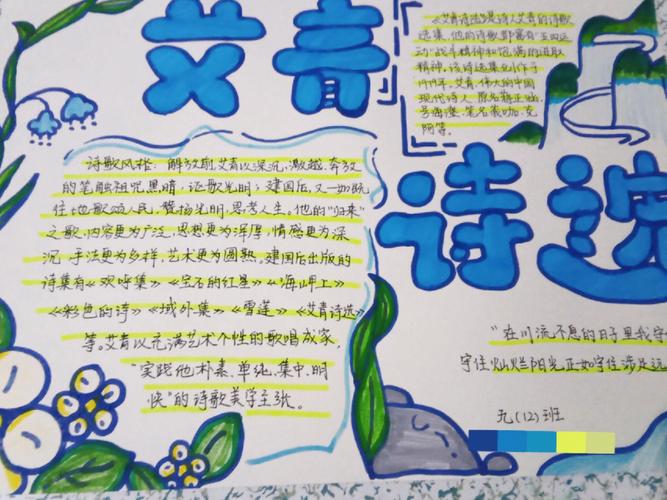 艾青
诗选
《艾青诗选》是诗人艾青的诗歌
选集,他的诗歌都富有"五四运
动"战斗精神和饱满的进取
精神。该诗选集创作于
1979年。艾青,伟大的中国
现代诗人。原名蒋正涵,
号海澄,笔名莪加、克
阿等。
诗歌风格:解放前,艾青以深沉、激越、奔放
的笔触诅咒黑暗,讴歌光明;建国后,又一如既
往地歌颂人民,赞扬光明,思考人生。他的"归来"
之歌,内容更为广泛,思想更为浑厚,情感更为深
沉,手法更为多样,艺术更为圆熟。建国后出版的
诗集有《欢呼集》《宝石的红星》《海岬上》
《彩色的诗》《域外集》《雪莲》《艾青诗选》
等。艾青以充满艺术个性的歌唱成家,
"实践他朴素、单纯、集中、明
快"的诗歌美学主张。
"在川流不息的日子里我守
守住灿烂阳光正如守住涉足远
九(12)班